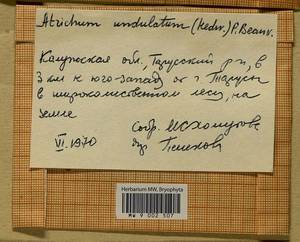 Atrichum undulatum (Hedw.) P. Beauv.
Калужская обл., Тарусский р-н, в
3 км к юго-запад. от г. Тарусы
в широколиственном лесу, на
земле
VI.1970
собр.
Herbarium MW, Bryophyta
MW 9 002 507